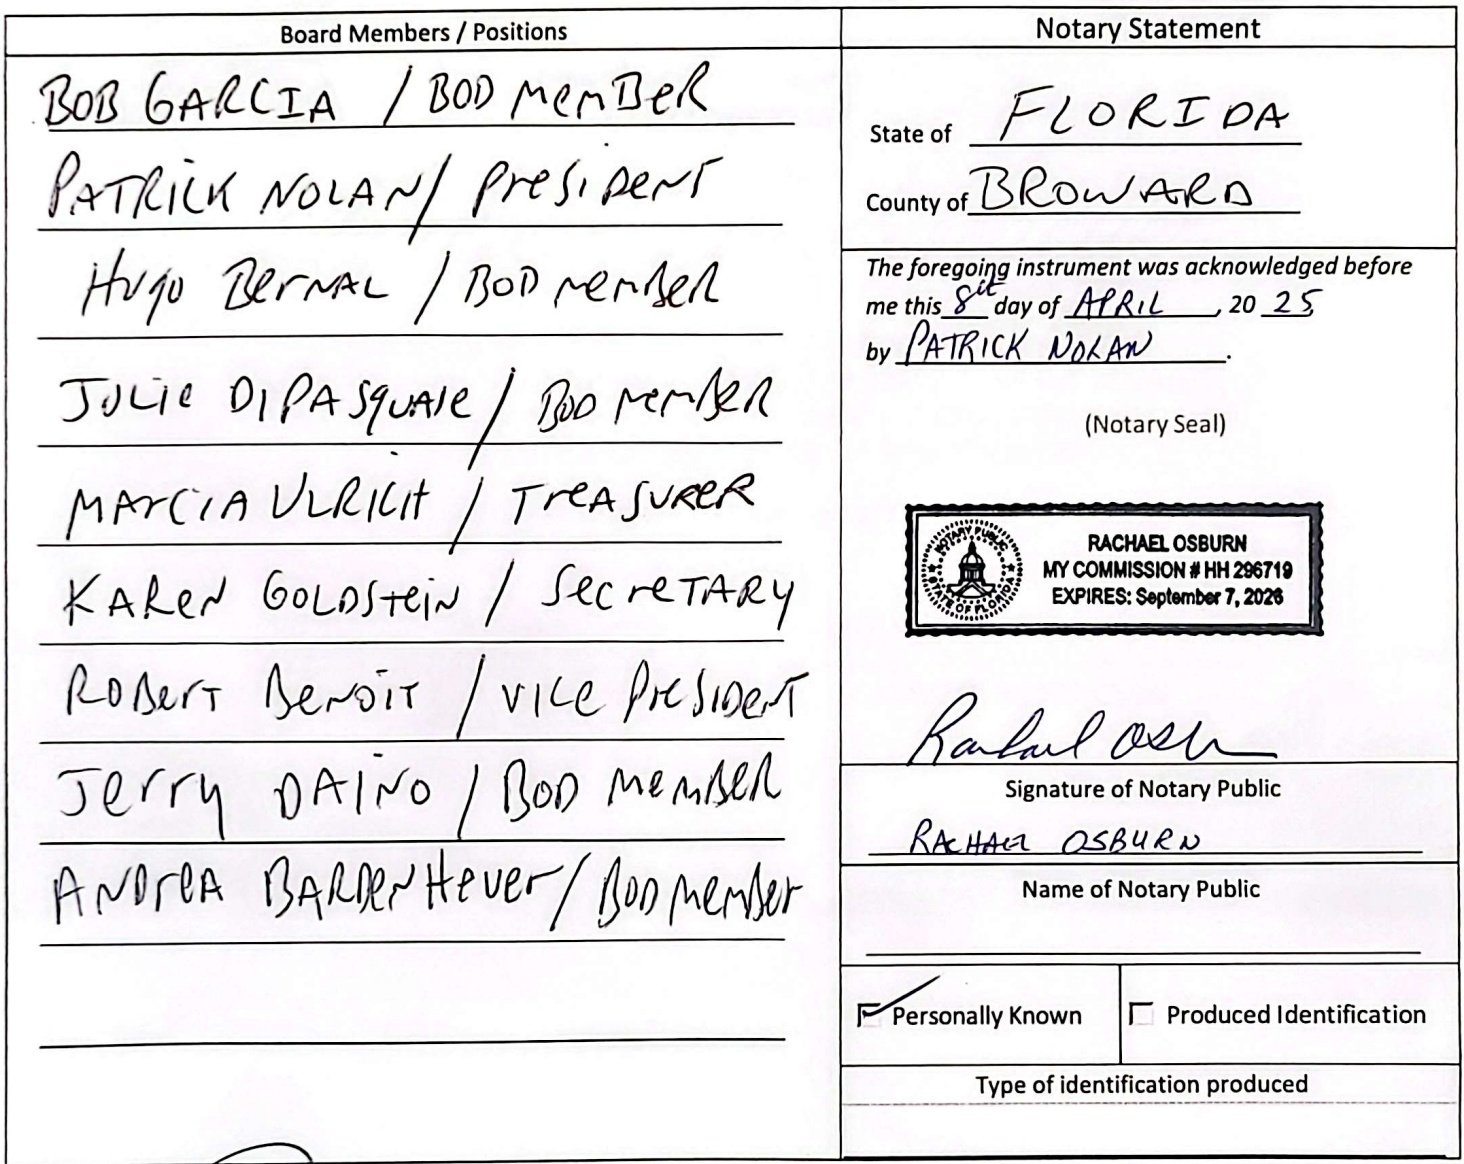 Board Members / Positions
BOB GARCIA / BOD MEMBER
PATRICK NOLAN / PRESIDENT
Hugo BERNAL / BOD MEMBER
JULIE DIPASQUALE / BOD MEMBER
MARCIA ULRICH / TREASURER
KAREN GOLDSTEIN / SECRETARY
ROBERT BENOIT / VICE PRESIDENT
JERRY DAINO / BOD MEMBER
ANDREA BARDENHEUER / BOD MEMBER
Notary Statement
State of FLORIDA
County of BROWARD
The foregoing instrument was acknowledged before
me this 8th day of APRIL, 20 25,
by PATRICK NOLAN.
(Notary Seal)
NOTARY PUBLIC
STATE OF FLORIDA
RACHAEL OSBURN
MY COMMISSION # HH 296719
EXPIRES: September 7, 2026
Rachael Osb
Signature of Notary Public
RACHAEL OSBURN
Name of Notary Public
Personally Known
Produced Identification
Type of identification produced